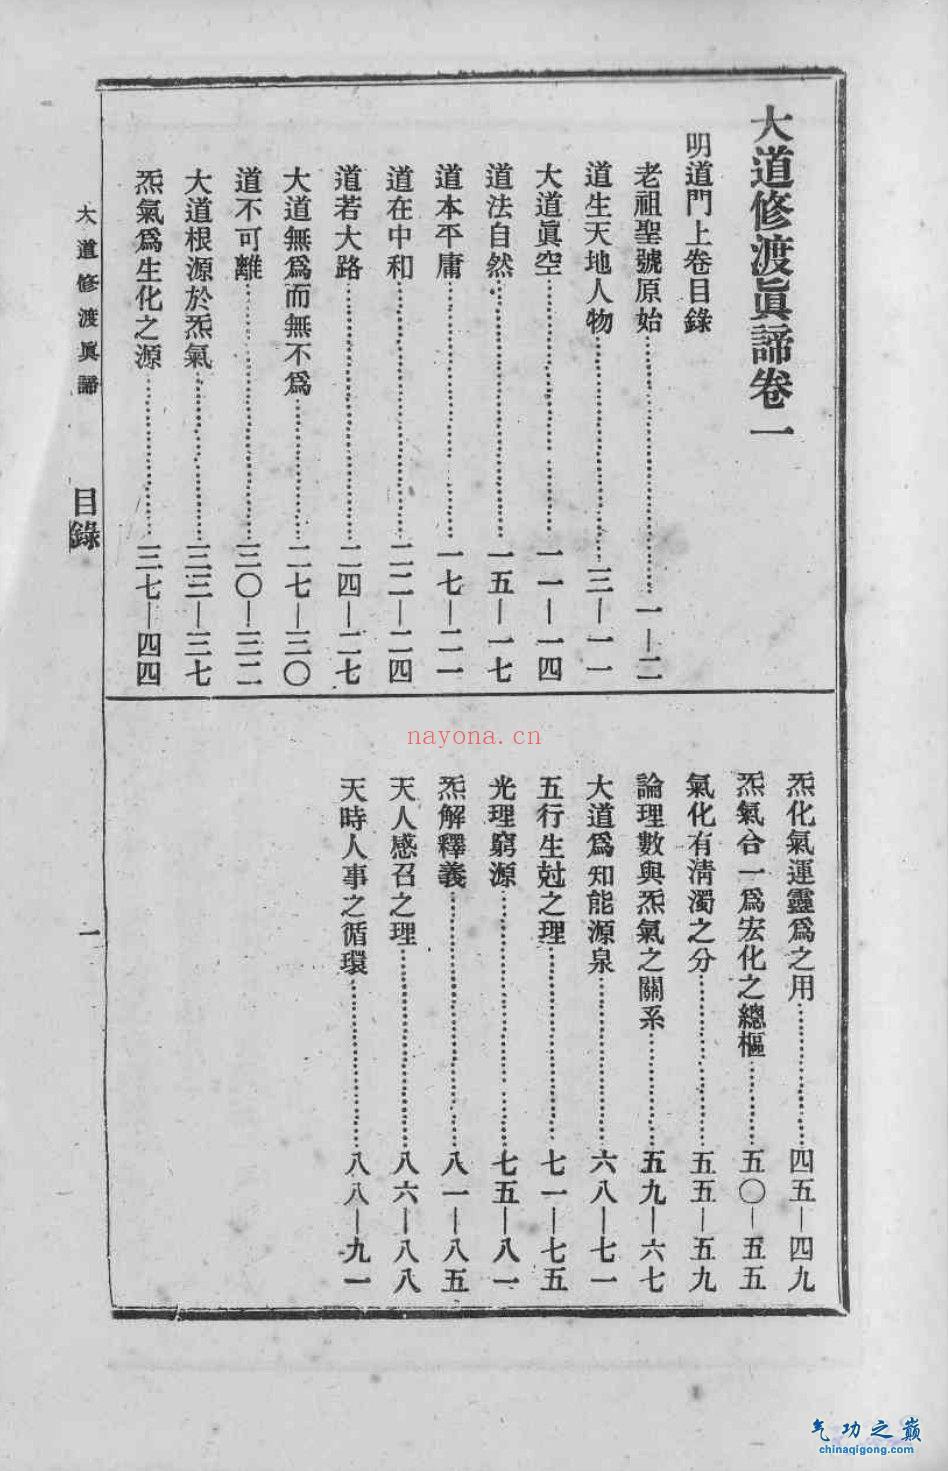 大道修渡眞諦卷一
明道門上卷目錄
老祖聖號原始……一—二
道生天地人物……三—一一
大道眞空……一一—一四
道法自然……一五—一七
道本平庸……一七—二一
道在中和……二二—二四
道若大路……二四—二七
大道無爲而無不爲……二七—三〇
道不可離……三〇—三二
大道根源於炁氣……三三—三七
炁氣爲生化之源……三七—四四
炁化氣運靈爲之用……四五—四九
炁氣合一爲宏化之總樞……五〇—五五
氣化有淸濁之分……五五—五九
論理數與炁氣之關系……五九—六七
大道爲知能源泉……六八—七一
五行生尅之理……七一—七五
光理窮源……七五—八一
炁解釋義……八一—八五
天人感召之理……八六—八八
天時人事之循環……八八—九一
大道修渡眞諦 目錄 一
nayona.cn
气功之巅
chinaqigong.com